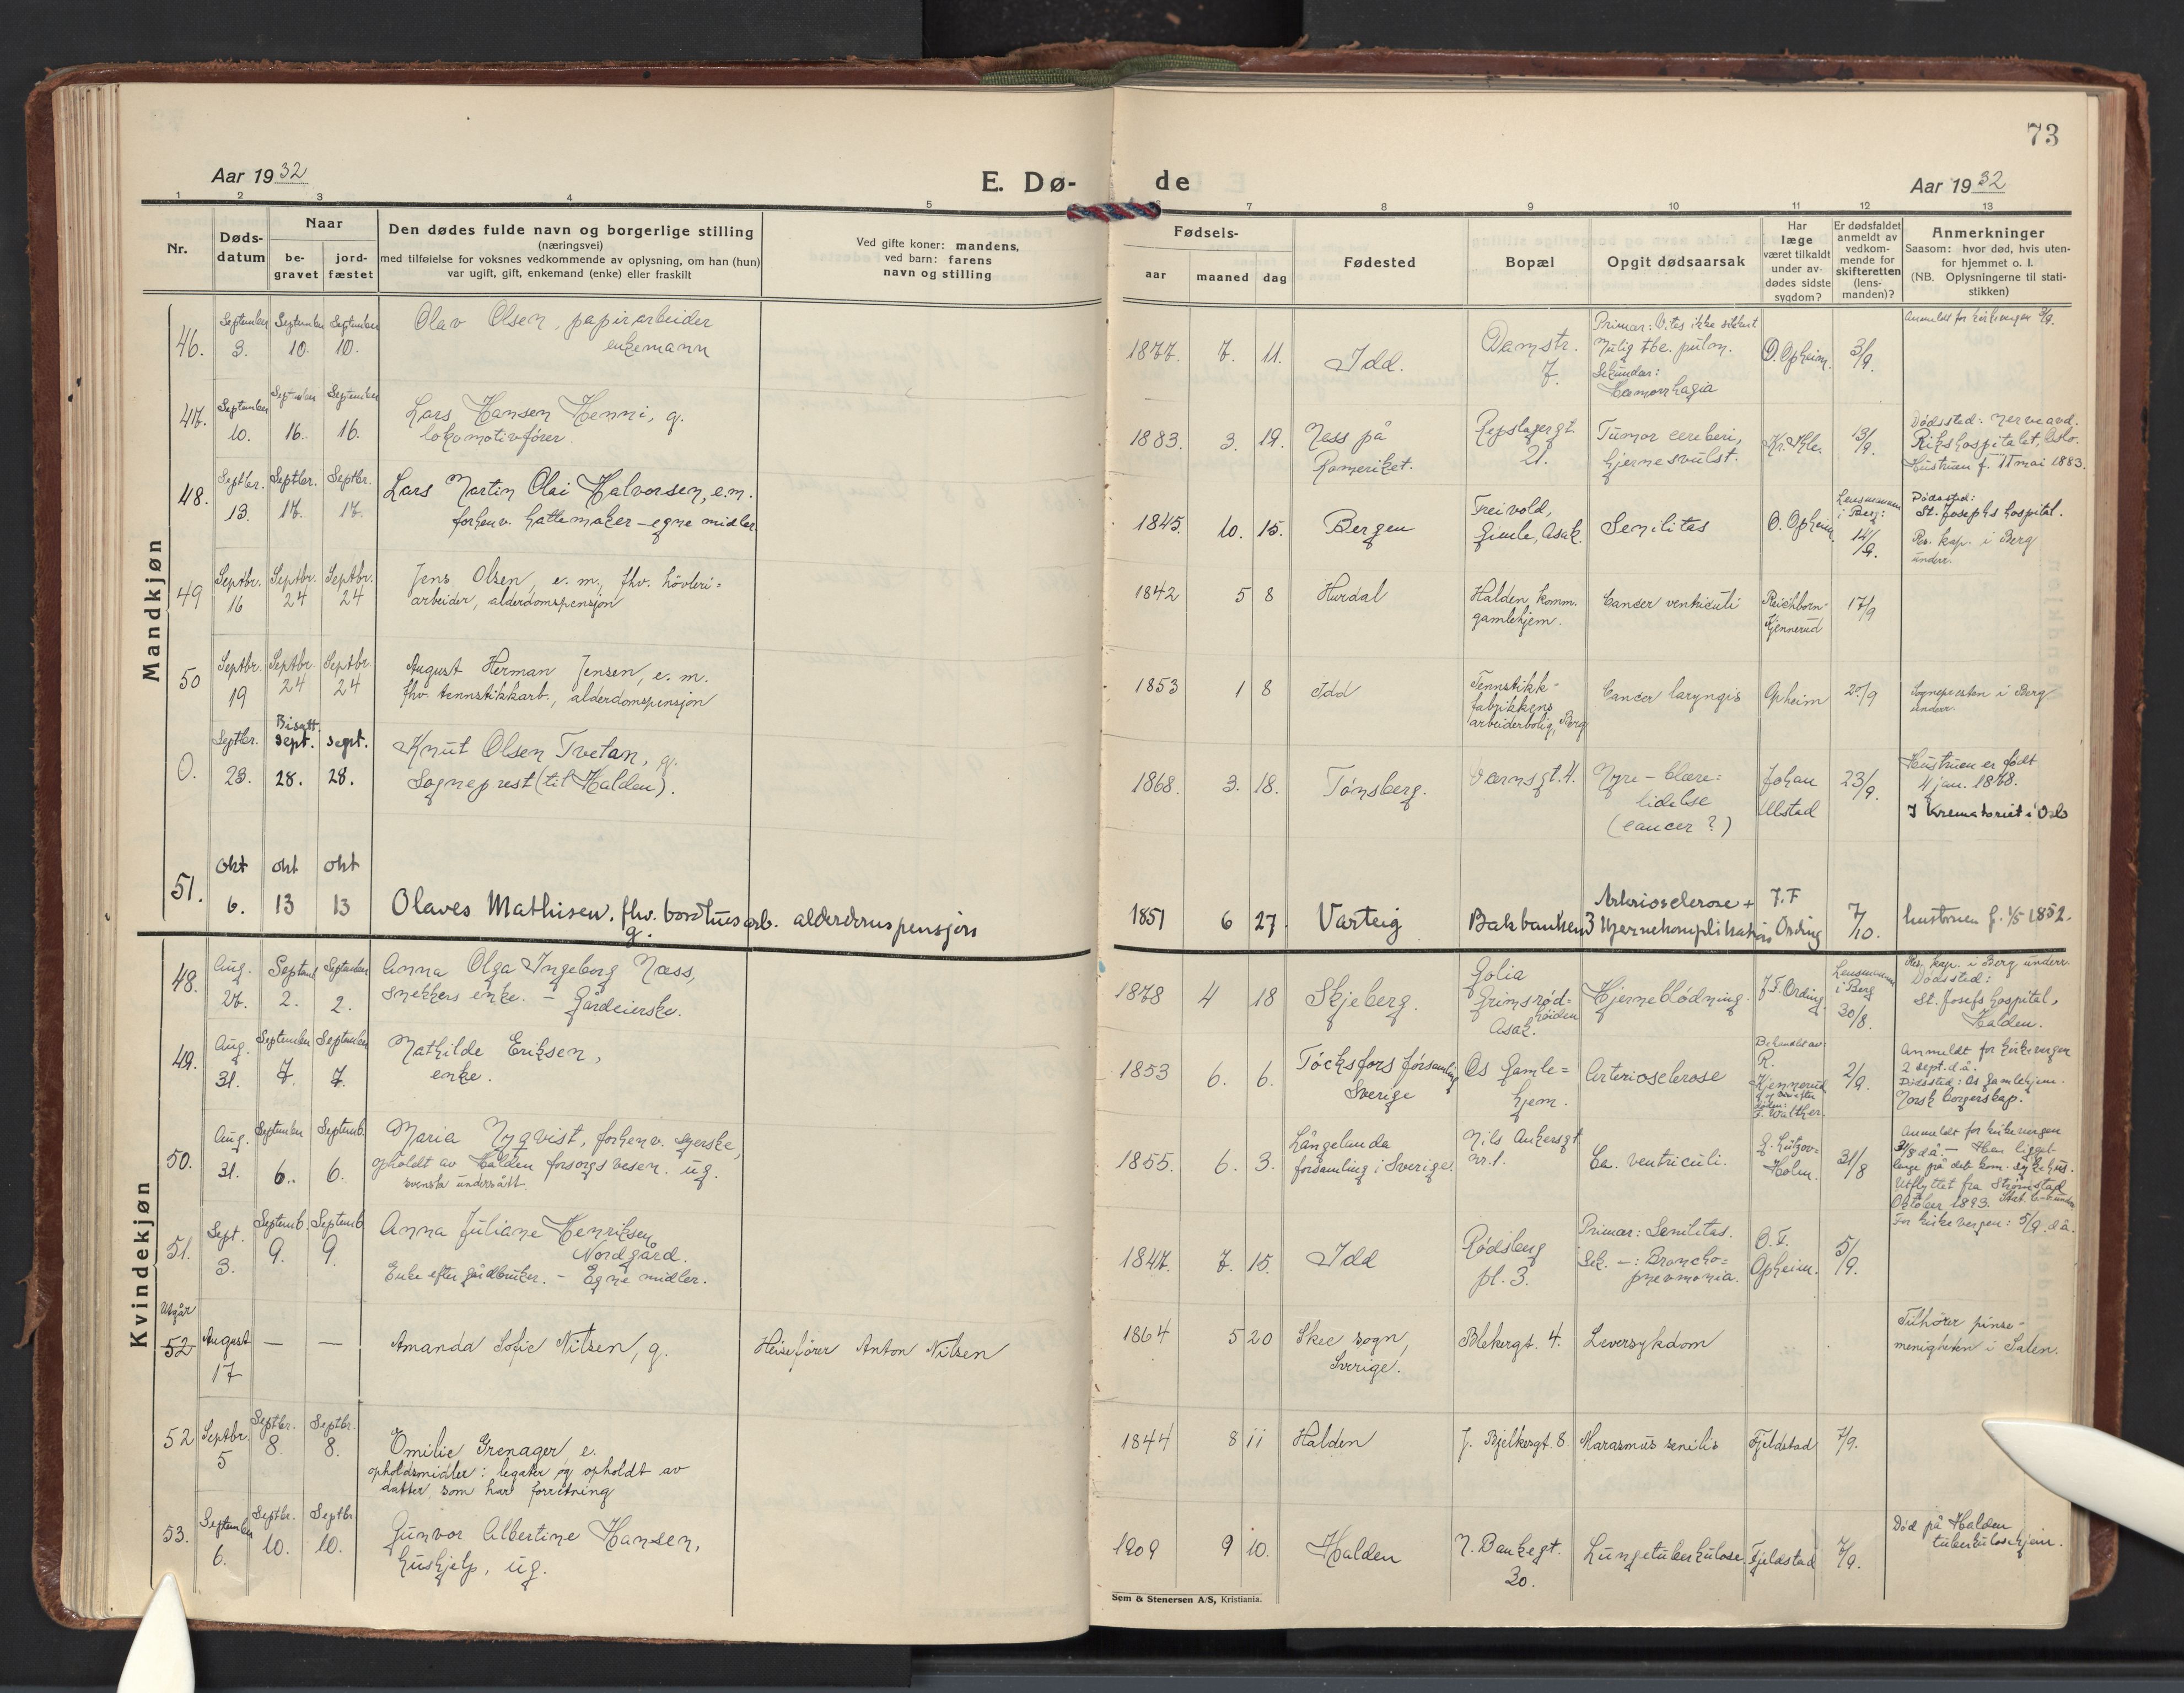 73
Aar 1932
E. Dø-
de
Aar 1932
1 2 3 4 5 6 7 8 9 10 11 12 13
Nr.
Døds-
datum
Naar
be-
gravet
jord-
fæstet
Den dødes fulde navn og borgerlige stilling
(næringsvei)
med tilføielse for voksnes vedkommende av oplysning, om han (hun)
var ugift, gift, enkemand (enke) eller fraskilt
Ved gifte koner: mandens,
ved barn: farens
navn og stilling
Fødsels-
aar
maaned
dag
Fødested
Bopæl
Opgit dødsaarsak
Har
læge
været tilkaldt
under av-
dødes sidste
sygdom?
Er dødsfaldet
anmeldt av
vedkom-
mende for
skifteretten
(lens-
manden)?
Anmerkninger
Saasom: hvor død, hvis uten-
for hjemmet o. l.
(NB. Oplysningerne til stati-
stikken)
Mandkjøn
46.
September
3.
September
10.
September
10.
Olav Olsen, papirarbeider
enkemann
1877. 7. 11.
Idd.
Damstr.
7.
Primær: Vites ikke sikkert
Mulig tbc. pulm.
Sekundær:
Hæmorrhagia
O. Opheim.
3/9.
Anmeldt for kirkevergen 3/9.
47.
September
10.
September
16.
September
16.
Lars Hansen Henni, g.
lokomotivfører.
1883. 3. 19.
Ness på
Romeriket.
Repslagergt.
21.
Tumor cereberi,
hjernesvulst.
13/9.
Dødssted: Nerveavd.
Rikshospitalet, Oslo.
Hustruen f. 11 mai 1883.
48.
Septbr.
13.
Septbr.
17.
Septbr.
17.
Lars Martin Olai Halvorsen, e.m.
forhenv. hattemaker – egne midler
1845. 10. 15.
Bergen
Freivold,
Gimle, Asak.
Senilitas
O. Opheim.
Lensmannen
i Berg:
14/9.
Dødssted:
St. Josephs hospital.
Res. kap. i Berg
underr.
49
Septbr.
16
Septbr.
24
Septbr.
24
Jens Olsen, e. m., fhv. høvleri-
arbeider, alderdomspensjon
1842 5 8
Hurdal
Halden komm.
gamlehjem.
Cancer ventriculi
Reichborn-
Kjennerud
17/9
50
Septbr.
19
Septbr.
24
Septbr.
24
August Herman Jensen, e. m.
fhv. tennstikkarb., alderdomspensjon
1853 1 8
Idd
Tennstikk-
fabrikkens
arbeiderbolig, Berg
Cancer laryngis
Opheim
20/9
Sognepresten i Berg
underr.
0.
Septbr.
23.
Bisatt.
sept.
28.
sept.
28.
Knut Olsen Tvetan, g.
Sogneprest (til Halden).
1868. 3. 18.
Tønsberg.
Værnsgt. 4.
Nyre – blære-
lidelse
(cancer?)
Johan
Ulstad
23/9.
Hustruen er født
4 jan. 1868.
I krematoriet i Oslo
51.
okt
6.
okt
13
okt
13
Olaves Mathisen, fhv. bordtusarb. alderdomspensjon
g.
1851 6 27.
Varteig
Bakbanken 3
Arteriosclerose +
Hjernekomplikation
F. F
Ording
7/10.
hustruen f. 1/5 1852.
Kvindekjøn
48.
Aug.
27.
Septemb
2.
September
2.
Anna Olga Ingeborg Næss,
snekkers enke. – Gårdeierske.
1878 4 18
Skjeberg.
Golia
Grimsrød-
høiden
Asak.
Hjerneblødning.
J. F. Ording.
Lensmannen
i Berg
30/8.
Res. kap. i Berg underr.
Dødssted:
St. Josefs hospital,
Halden.
49.
Aug.
31.
September
7.
September
7.
Mathilde Eriksen,
enke.
1853 6. 6.
Töcksfors församling
Sverige
Os Gamle-
hjem.
Arteriosclerose
Behandlet av:
R.
Kjennerud
F. Walther.
2/9.
Anmeldt for kirkevergen
2 sept. d.å.
Dødssted: Os gamlehjem.
Norsk borgerskap.
50.
Aug.
31.
September
6.
Septemb.
6.
Maria Nyqvist, forhenv. syerske,
opholdt av Halden forsorgsvesen. ug.
svensk undersått.
1855. 6. 3.
Långelanda
församling i Sverige.
Nils Ankersgt.
nr. 1.
Ca. ventriculi.
Lützow-
Holm.
31/8
Anmeldt for kirkevergen
31/8 då. – Har ligget
lenge på det kom. sykehus.
Utflyttet fra Strömstad
Oktober 1893.
51.
Sept.
3.
Septemb
9.
Septemb
9.
Anna Juliane Henriksen
Nordgård.
Enke efter gårdbruker. – Egne midler.
1847. 7. 15.
Idd
Rødsberg
pl. 3.
Primær: Senilitas.
Sek. –: Broncho-
pneumonia.
O. T.
Opheim.
5/9.
For kirkevergen: 5/9. då.
Utgår
52
August
17
—
—
Amanda Sofie Nilsen, g.
Heisefører Anton Nilsen
1864 5 20
Skee sogn,
Sverige.
Blekergt. 4.
Leversykdom
Tilhører pinse-
menigheten i Salen.
52
Septbr.
5
Septbr.
8.
Septbr.
8.
Emilie Grenager, e.
opholdsmidler: legater og opholdt av
datter som har forretning
1844 8 11
Halden
J. Bjelkesgt. 8.
Marasmus senilis
Fjeldstad
7/9.
53.
September
6.
Septbr.
10.
Septbr
10.
Gunvor Albertine Hansen,
hushjelp, ug.
1909 9 10.
Halden
N. Bankegt.
30.
Lungetuberkulose.
Fjeldstad
7/9.
Død på Halden
tuberkulosehjem.
Sem & Stenersen A/S, Kristiania.